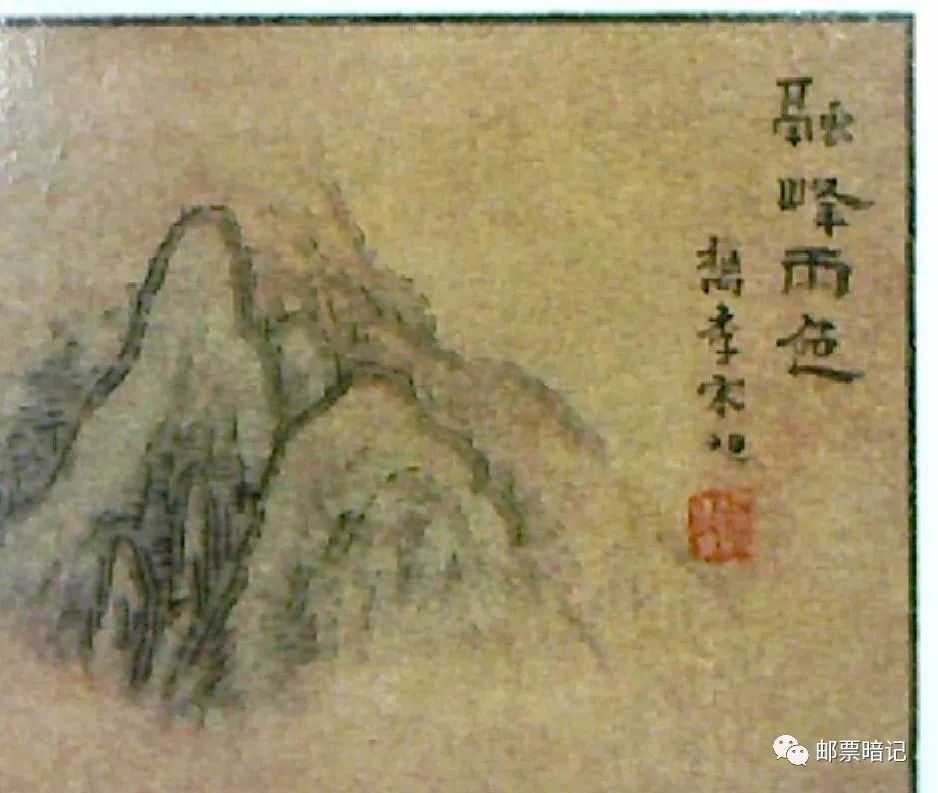 融峰雨色
檇李宋旭
邮票暗记